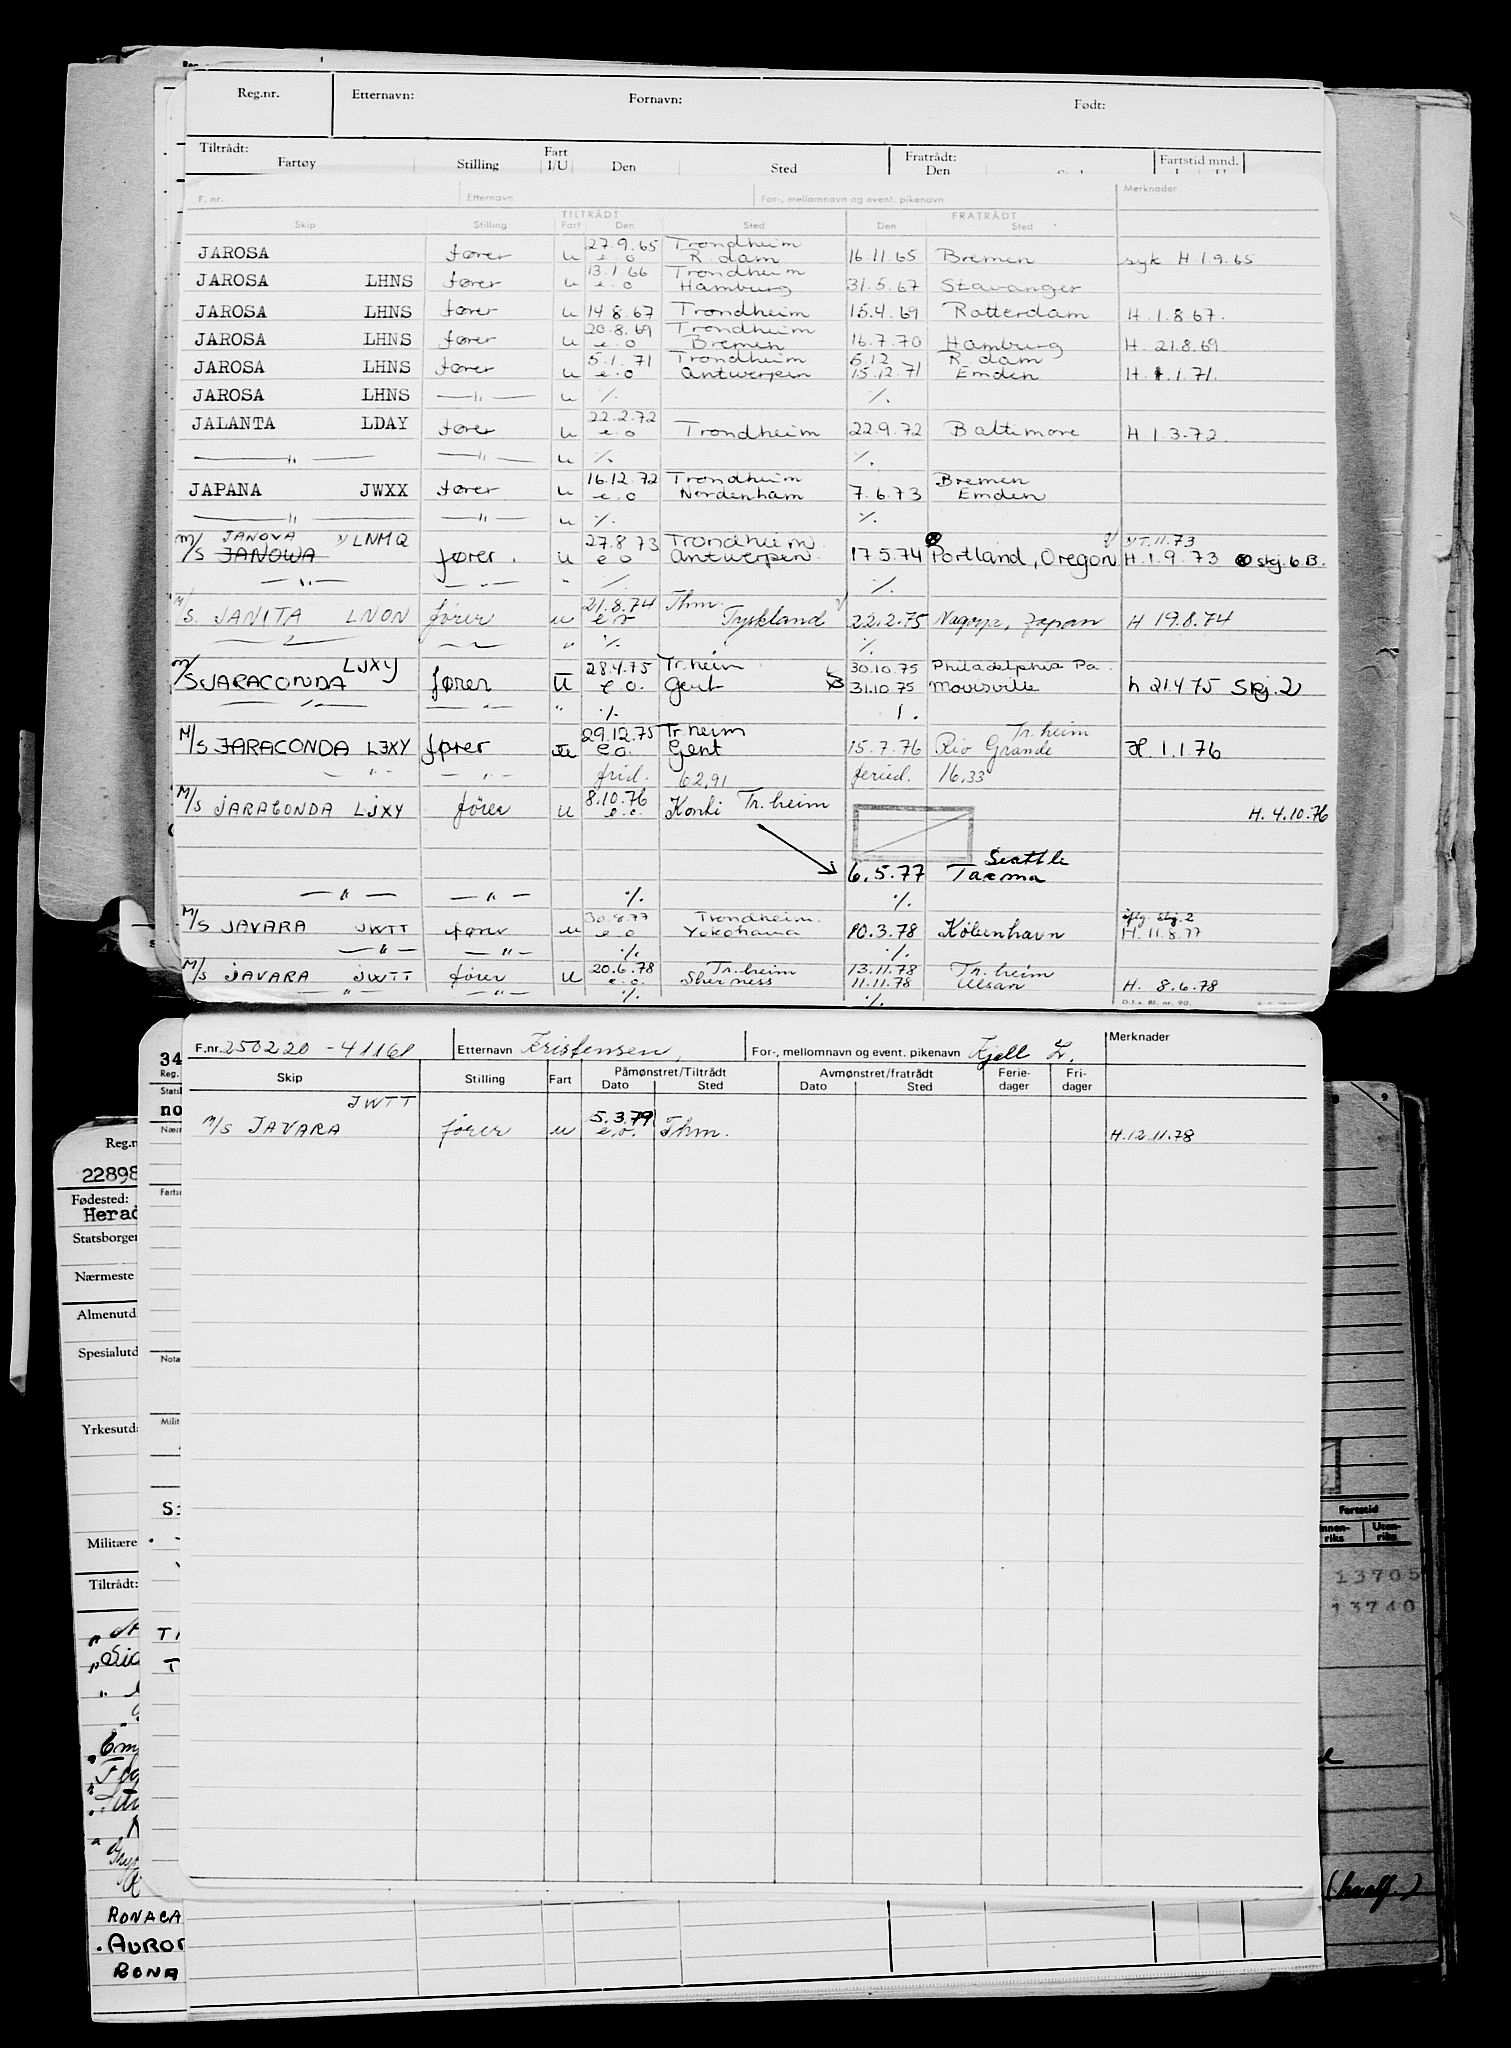 Reg.nr. Etternavn: Fornavn: Født:
Tiltrådt: Fartøy Stilling Fart I/U Den Sted Fratrådt: Den Fartstid mnd.
F. nr. Etternavn For-, mellomnavn og event. pikenavn Merknader
TILTRÅDT FRATRÅDT
Skip Stilling Fart Den Sted Den Sted
27.9.65 Trondheim
JAROSA fører u e.o R.dam 16.11.65 Bremen syk H 1.9.65
13.1.66 Trondheim
JAROSA LHNS fører u e.o Hamburg 31.5.67 Stavanger
JAROSA LHNS fører u 14.8.67 Trondheim 15.4.69 Rotterdam H.1.8.67.
20.8.69 Trondheim
JAROSA LHNS fører u e.o Bremen 16.7.70 Hamburg H. 21.8.69
5.1.71 Trondheim 5.12 R.dam
JAROSA LHNS fører u e.o Antwerpen 15.12.71 Emden H. 1.1.71.
JAROSA LHNS —"— u ⁒ ⁒
22.2.72
JALANTA LDAY fører u e.o Trondheim 22.9.72 Baltimore H 1.3.72.
—"— —"— u ⁒ ⁒
16.12.72 Trondheim Bremen
JAPANA JWXX fører u e.o Nordenham 7.6.73 Emden
—"— —"— u ⁒ ⁒
JANOVA LNMQ 27.8.73 Trondheim
M/S JANOWA fører. u e o Antwerpen. 17.5.74 Portland, Oregon H.1.9.73 skj. 6 B.
—"— —"— " ⁒ ⁒
21.8.74 Thm.
M/S. JANITA LNON fører u e o Tyskland 22.2.75 Nagoya, Japan H 19.8.74
" ⁒ ⁒
LJXY 28.4.75 Tr.heim 30.10.75 Philadelphia Pa.
M/S JARACONDA fører U e o. Gent 31.10.75 Morisville h 21.4.75 Skj. 2
—"— —"— " ⁒
29.12.75 Tr.heim Tr.heim
M/S JARACONDA LJXY fører u e.o. Gent 15.7.76 Rio Grande H. 1.1.76
—"— —"— frid. 62,91 feried. 16,33
8.10.76
M/S JARACONDA LJXY fører u e.o. Tr.heim H. 4.10.76
Seattle
6.5.77 Tacoma
—"— —"— ⁒ ⁒
30.8.77 Trondheim. iflg. skj. 2
M/S JAVARA JWTT fører u e.o Yokohama 10.3.78 København H. 11.8.77
—"— —"— ⁒ ⁒
20.6.78 Tr.heim 13.11.78 Tr.heim
M/S JAVARA JWTT fører U e.o. Sherness 11.11.78 Ulsan H. 8.6.78
—"— —"— ⁒ ⁒
D.f.s. Bl. nr. 90.
F.nr. 250220-41161 Etternavn Kristensen, For-, mellomnavn og event. pikenavn Kjell Z. Merknader
Påmønstret/Tiltrådt Avmønstret/fratrådt Ferie- Fri-
Skip Stilling Fart Dato Sted Dato Sted dager dager
JWTT 5.3.79
M/S JAVARA fører u e.o. Thm. H.12.11.78
34
Reg.
Stats
no
Nærm
Fartsc
Nota
Milit
Reg.n
22898
Fødested:
Herad
Statsborger
Nærmeste
Almenutd
Spesialutd
Yrkesutda
Militære
Tiltrådt:
RONACA
AUROR
BONA
Fartstid
Innen-riks Uten-riks
13705
13740